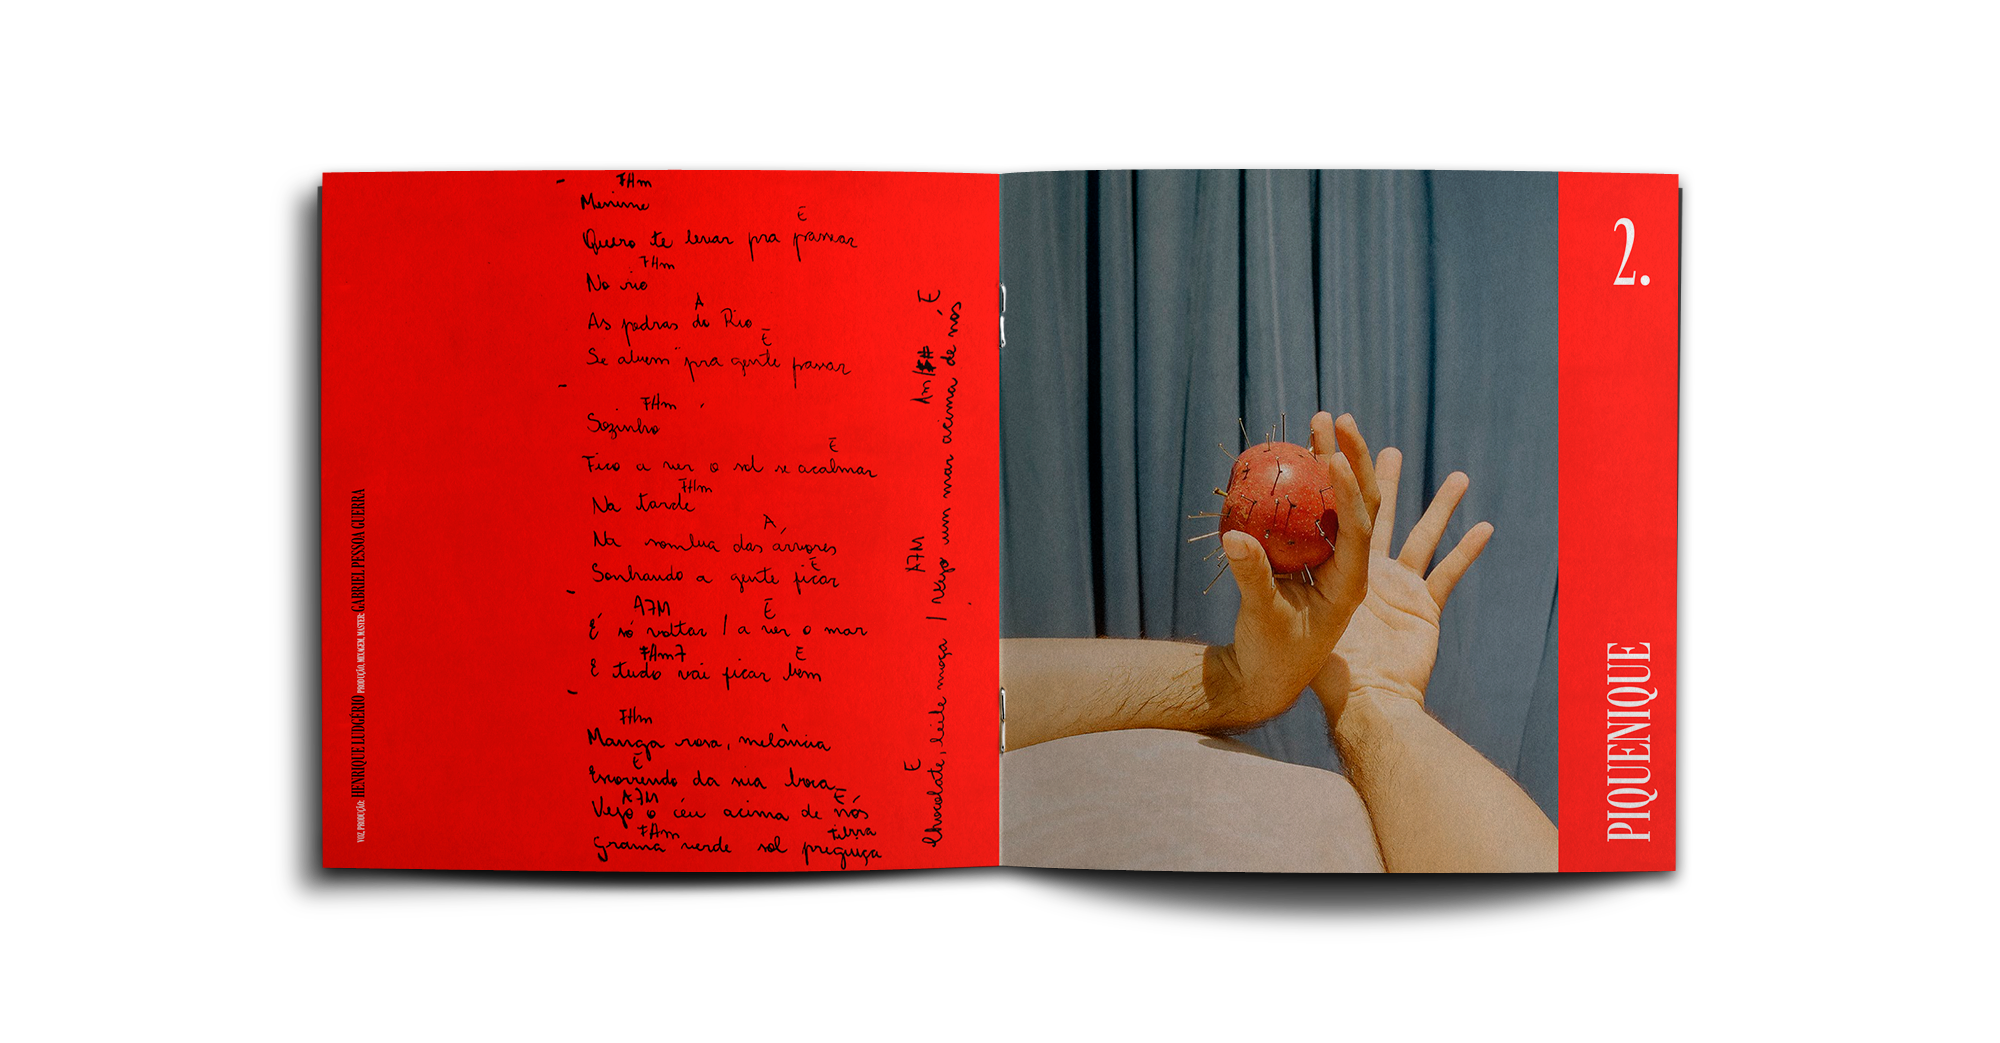 F#m
Menine
E
Quero te levar pra passear
F#m
No rio
A
As pedras do Rio
E
Se abrem pra gente passar
F#m
Sozinho
E
Fico a ver o sol se acalmar
F#m
Na tarde
A
Na sombra das árvores
E
Sonhando a gente ficar
A7M E
É só voltar / a ver o mar
F#m7 E
E tudo vai ficar bem
F#m
Manga rosa, melância
E
Escorrendo da sua boca
A7M E
Vejo o céu acima de nós
F#m terra
Grama verde sol preguiça
E A7M Am E
Chocolate, leite moça / Vejo um mar acima de nós
VOZ, PRODUÇÃO: HENRIQUE LUDGÉRIO PRODUÇÃO, MIXAGEM, MASTER: GABRIEL PESSOA GUERRA
2.
PIQUENIQUE